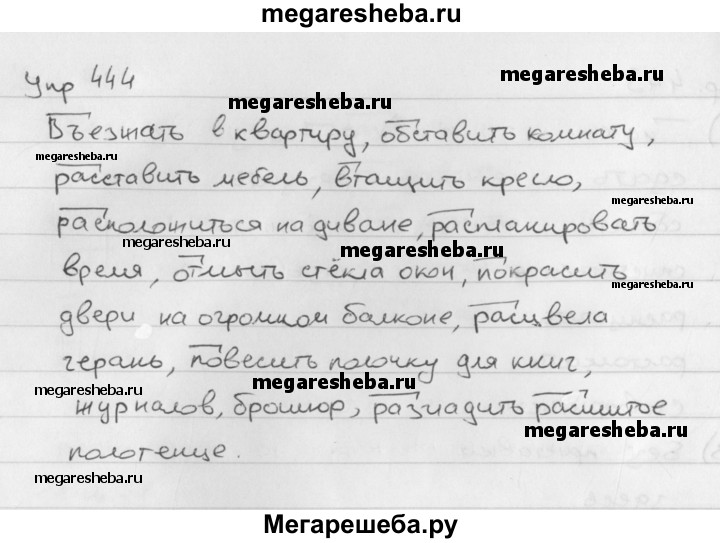 megaresheba.ru
Упр 444
megaresheba.ru
megaresheba.ru
Въезжать в квартиру, обставить комнату,
megaresheba.ru
расставить мебель, втащить кресло,
расположиться на диване, распланировать
megaresheba.ru
megaresheba.ru
время, отмыть стёкла окон, покрасить
megaresheba.ru
двери на огромном балконе, расцвела
герань, повесить полочку для книг,
megaresheba.ru
megaresheba.ru
журналов, брошюр, разгладить расшитое
megaresheba.ru
полотенце.
megaresheba.ru
Мегарешеба.ру